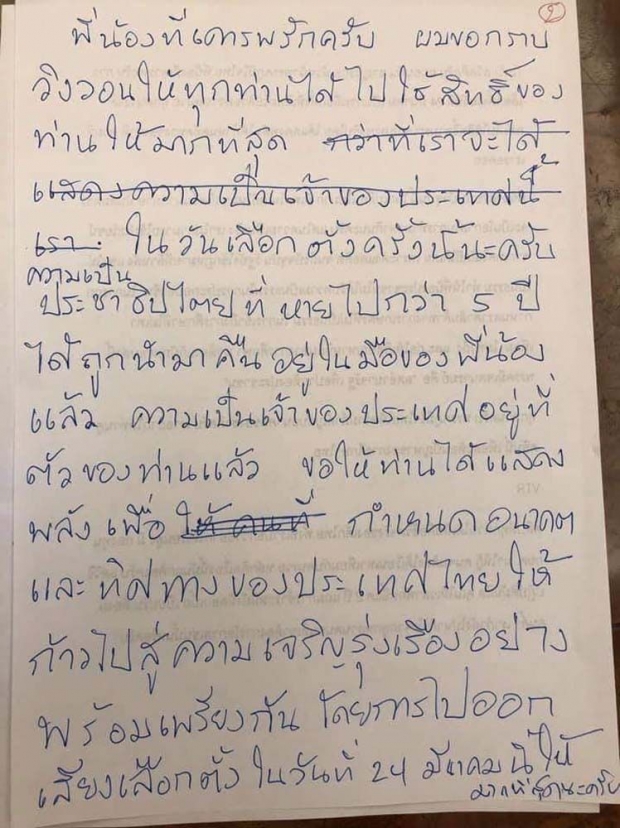 ๑
พี่น้องที่เคารพรักครับ ผมขอกราบ
วิงวอนให้ทุกท่านได้ไปใช้สิทธิ์ของ
ท่านให้มากที่สุด กว่าที่เราจะได้
แสดงความเป็นเจ้าของประเทศนี้
เรา ในวันเลือกตั้งครั้งนี้นะครับ
ความเป็น
ประชาธิปไตยที่หายไปกว่า 5 ปี
ได้ถูกนำมาคืนอยู่ในมือของพี่น้อง
แล้ว ความเป็นเจ้าของประเทศอยู่ที่
ตัวของท่านแล้ว ขอให้ท่านได้แสดง
พลังเพื่อ ให้คนที่ กำหนดอนาคต
และทิศทางของประเทศไทยให้
ก้าวไปสู่ความเจริญรุ่งเรืองอย่าง
พร้อมเพรียงกัน โดยการไปออก
เสียงเลือกตั้งในวันที่ 24 มีนาคมนี้ให้
มากที่สุดนะครับ